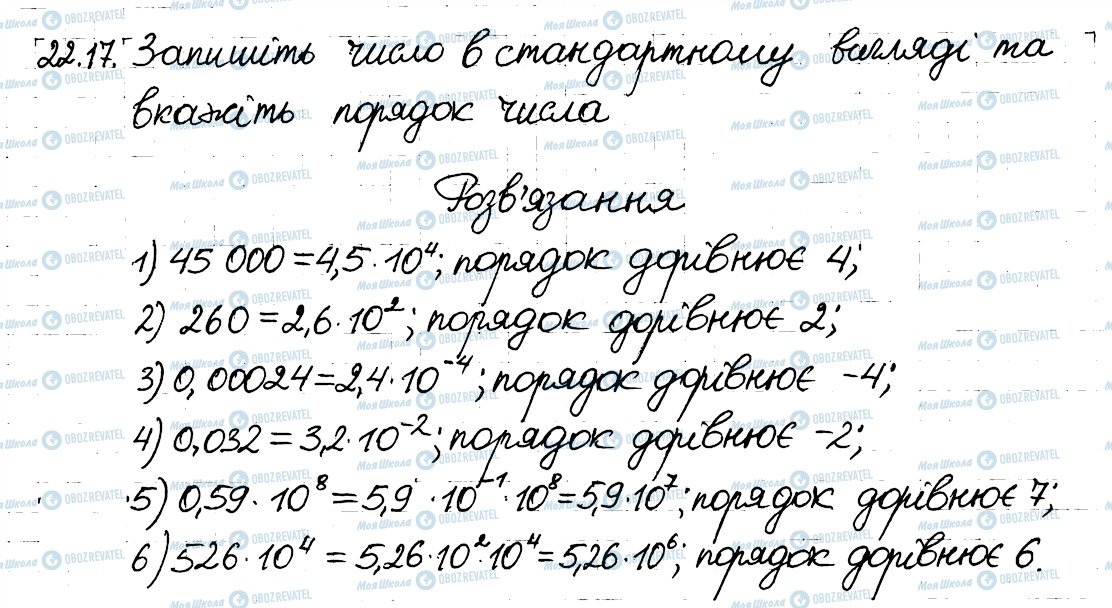 22.17. Запишіть число в стандартному вигляді та
вкажіть порядок числа
Розв'язання
1) 45 000 = 4,5 · 10⁴; порядок дорівнює 4;
2) 260 = 2,6 · 10²; порядок дорівнює 2;
3) 0,00024 = 2,4 · 10⁻⁴; порядок дорівнює -4;
4) 0,032 = 3,2 · 10⁻²; порядок дорівнює -2;
5) 0,59 · 10⁸ = 5,9 · 10⁻¹ · 10⁸ = 5,9 · 10⁷; порядок дорівнює 7;
6) 526 · 10⁴ = 5,26 · 10² · 10⁴ = 5,26 · 10⁶; порядок дорівнює 6.